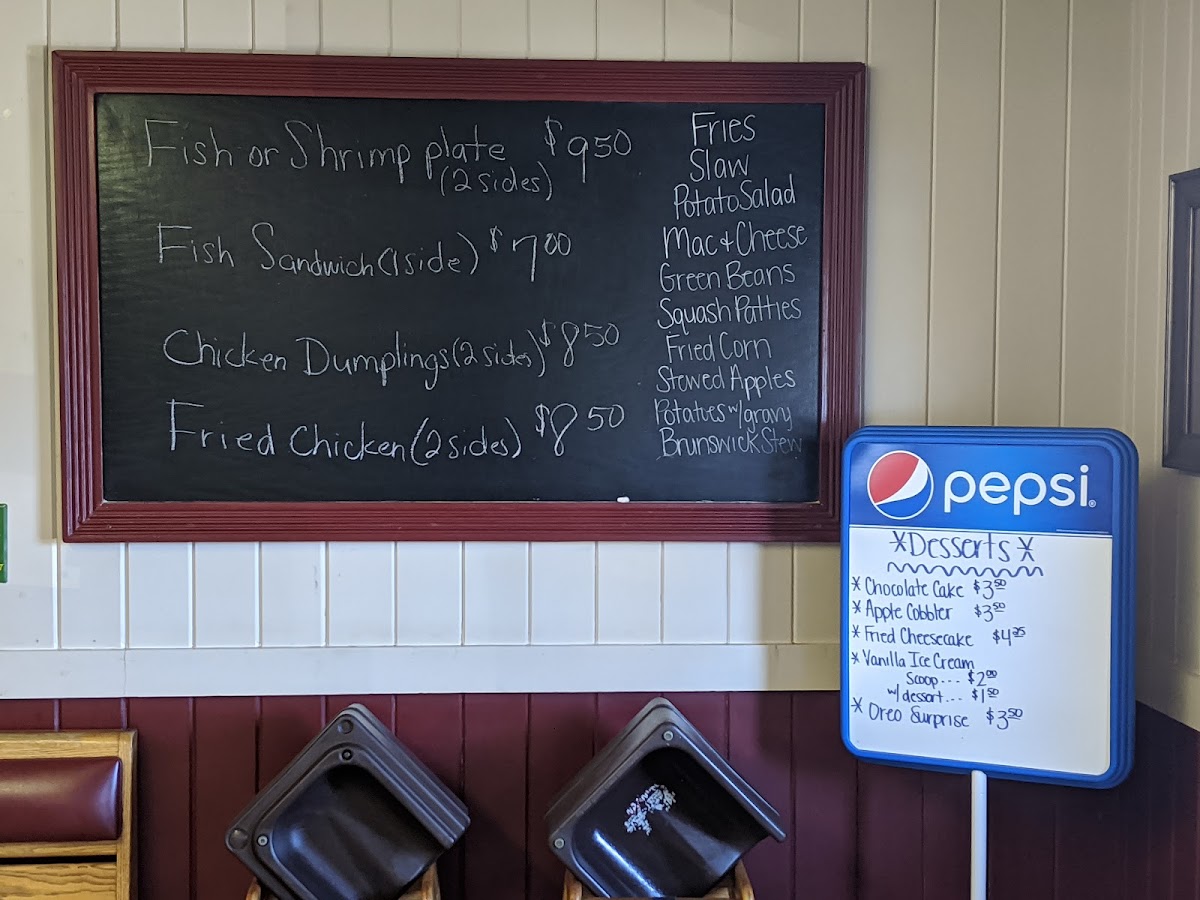 Fish or Shrimp plate $9.50
(2 sides)
Fish Sandwich (1 side) $7.00
Chicken Dumplings (2 sides) $8.50
Fried Chicken (2 sides) $8.50
Fries
Slaw
Potato Salad
Mac & Cheese
Green Beans
Squash Patties
Fried Corn
Stewed Apples
Potatoes w/gravy
Brunswick Stew
pepsi
*Desserts*
* Chocolate Cake $3.50
* Apple Cobbler $3.50
* Fried Cheesecake $4.25
* Vanilla Ice Cream
Scoop--- $2.00
w/ dessert--- $1.50
* Oreo Surprise $3.50